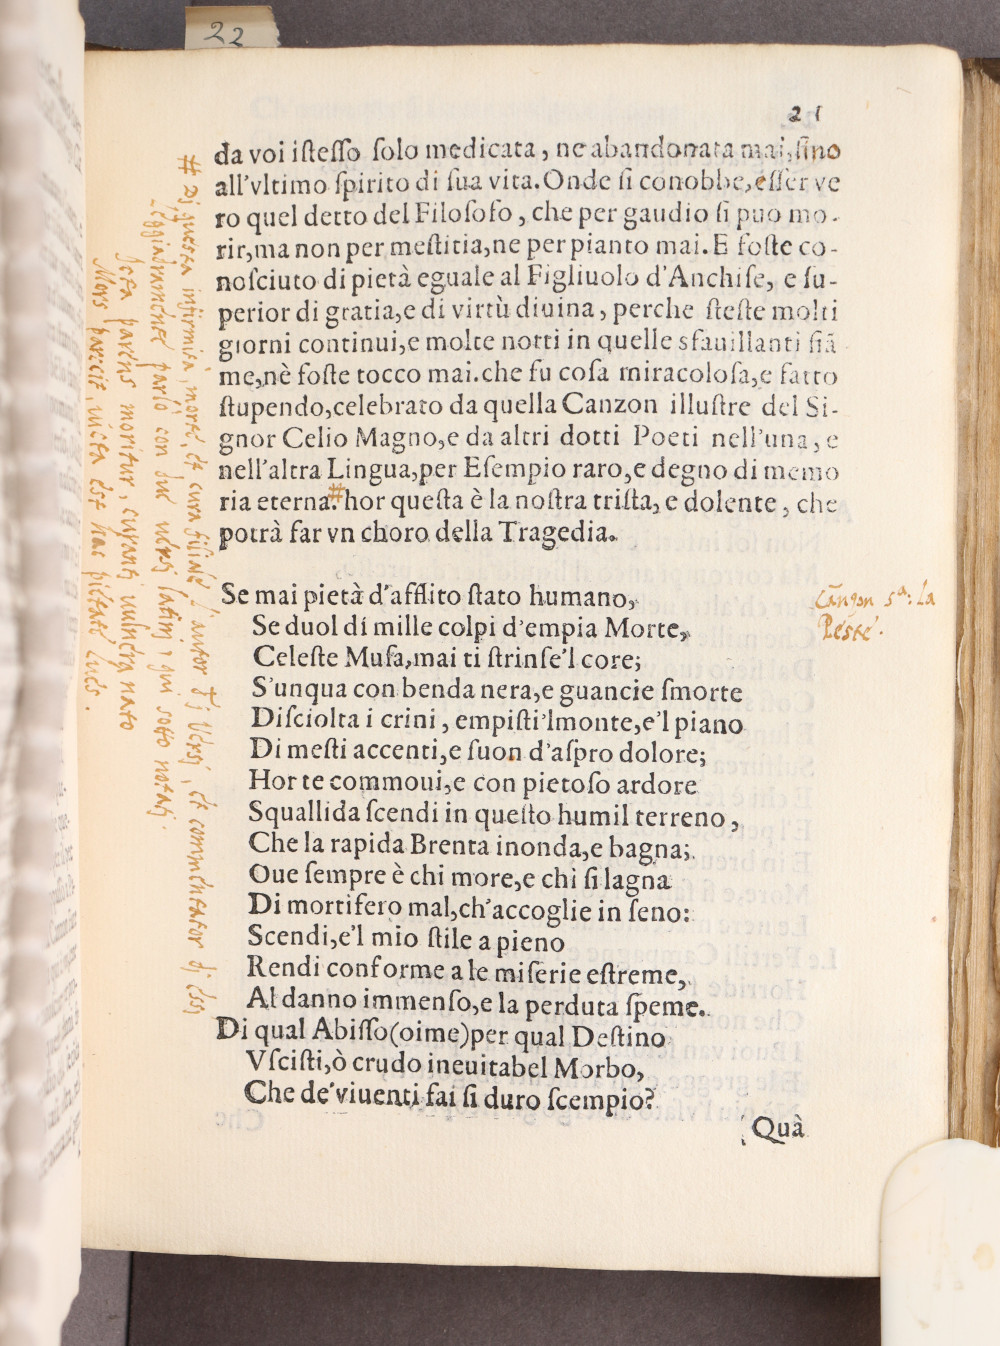 22
21
da voi iſteſſo ſolo medicata, ne abandonata mai, ſino
all'vltimo ſpirito di ſua vita. Onde ſi conobbe, eſſer ve
ro quel detto del Filoſofo, che per gaudio ſi puo mo-
rir, ma non per meſtitia, ne per pianto mai. E foſte co-
noſciuto di pietà eguale al Figliuolo d'Anchiſe, e ſu-
perior di gratia, e di virtù diuina, perche ſteſte molti
giorni continui, e molte notti in quelle sfauillanti fiã
me, nè foſte tocco mai. che fu coſa miracoloſa, e fatto
ſtupendo, celebrato da quella Canzon illuſtre del Si-
gnor Celio Magno, e da altri dotti Poeti nell'una, e
nell'altra Lingua, per Eſempio raro, e degno di memo
ria eterna.# hor queſta è la noſtra triſta, e dolente, che
potrà far vn choro della Tragedia.
Se mai pietà d'afflito ſtato humano,
Se duol di mille colpi d'empia Morte,
Celeſte Muſa, mai ti ſtrinſe'l core;
S'unqua con benda nera, e guancie ſmorte
Diſciolta i crini, empiſti'lmonte, e'l piano
Di meſti accenti, e ſuon d'aſpro dolore;
Hor te commoui, e con pietoſo ardore
Squallida ſcendi in queſto humil terreno,
Che la rapida Brenta inonda, e bagna;
Oue ſempre è chi more, e chi ſi lagna
Di mortifero mal, ch'accoglie in ſeno:
Scendi, e'l mio ſtile a pieno
Rendi conforme a le miſerie eſtreme,
Al danno immenſo, e la perduta ſpeme.
Di qual Abiſſo (oime) per qual Deſtino
Vſciſti, ò crudo ineuitabel Morbo,
Che de' viuenti fai ſi duro ſcempio?
Quà
# Di questa infirmità, morte, et cura filiale l'autor di versi, et commentator di essi
leggiadramente parlò con due versi latini, qui sotto notati.
Icta parens moritur, curanti vulnera nato
Mors parcit, victa est hac pietate lues.
Canzon 5ª: La
Peste.